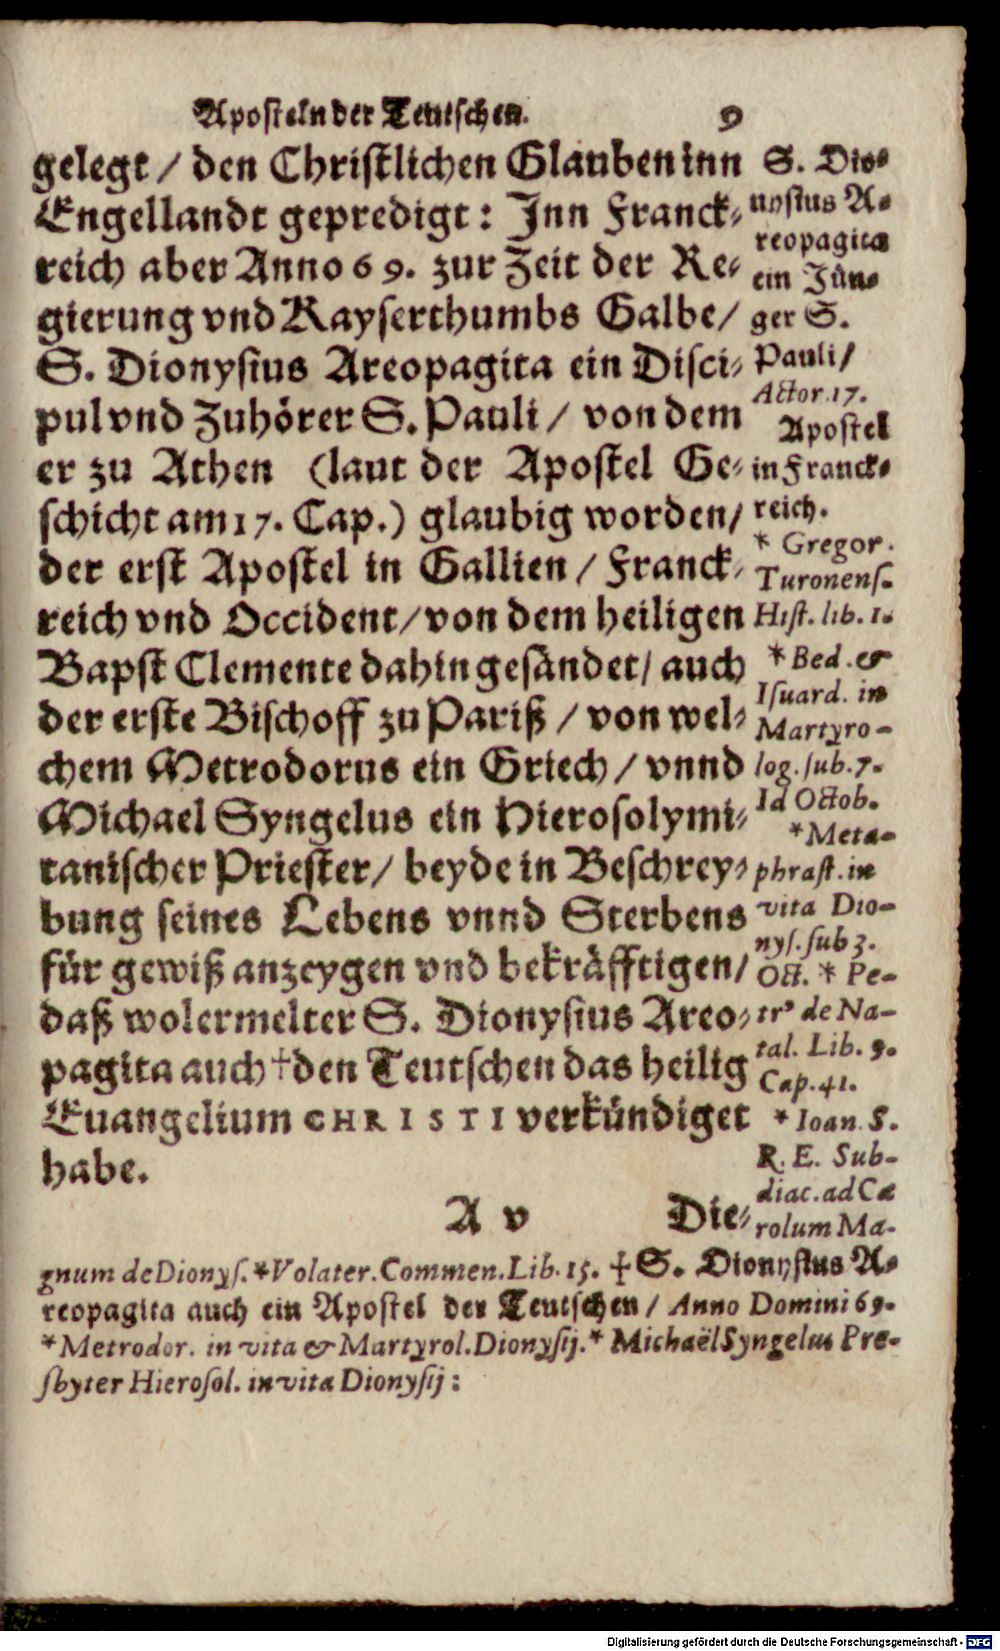 Aposteln der Teutschen. 9
gelegt / den Christlichen Glauben inn
Engellandt gepredigt: Jnn Franck-
reich aber Anno 69. zur Zeit der Re-
gierung vnd Kayserthumbs Galbe /
S. Dionysius Areopagita ein Disci-
pul vnd Zuhörer S. Pauli / von dem
er zu Athen (laut der Apostel Ge-
schicht am 17. Cap.) glaubig worden /
der erst Apostel in Gallien / Franck-
reich vnd Occident / von dem heiligen
Bapst Clemente dahin gesändet / auch
der erste Bischoff zu Pariß / von wel-
chem Metrodorus ein Griech / vnnd
Michael Syngelus ein Hierosolymi-
tanischer Priester / beyde in Beschrey-
bung seines Lebens vnnd Sterbens
für gewiß anzeygen vnd bekräfftigen /
daß wolermelter S. Dionysius Areo-
pagita auch † den Teutschen das heilig
Euangelium CHRISTI verkündiget
habe.
A v Die-
S. Dio-
nysius A-
reopagita
ein Jün-
ger S.
Pauli /
Actor. 17.
Apostel
in Franck-
reich.
* Gregor.
Turonens.
Hist. lib. 1.
* Bed. &
Isuard. in
Martyro-
log. sub. 7.
Id Octob.
* Meta-
phrast. in
vita Dio-
nys. sub 3.
Oct. * Pe-
tr' de Na-
tal. Lib. 9.
Cap. 41.
* Ioan. S.
R. E. Sub-
diac. ad Ca
rolum Ma-
gnum de Dionys. * Volater. Commen. Lib. 15. † S. Dionysius A-
reopagita auch ein Apostel der Teutschen / Anno Domini 69.
* Metrodor. in vita & Martyrol. Dionysij. * Michaël Syngelus Pre-
sbyter Hierosol. in vita Dionysij:
Digitalisierung gefördert durch die Deutsche Forschungsgemeinschaft - DFG